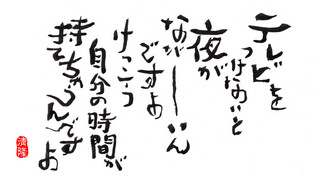 テレビを
つけないと
夜が
なが――いん
ですよ
けっこう
自分の時間が
持てちゃうんです
よ